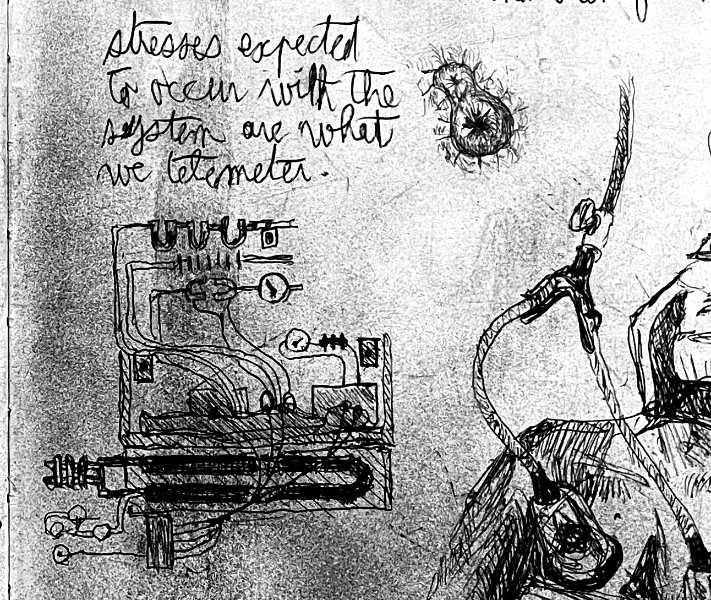 stresses expected
to occur with the
system are what
we telemeter.